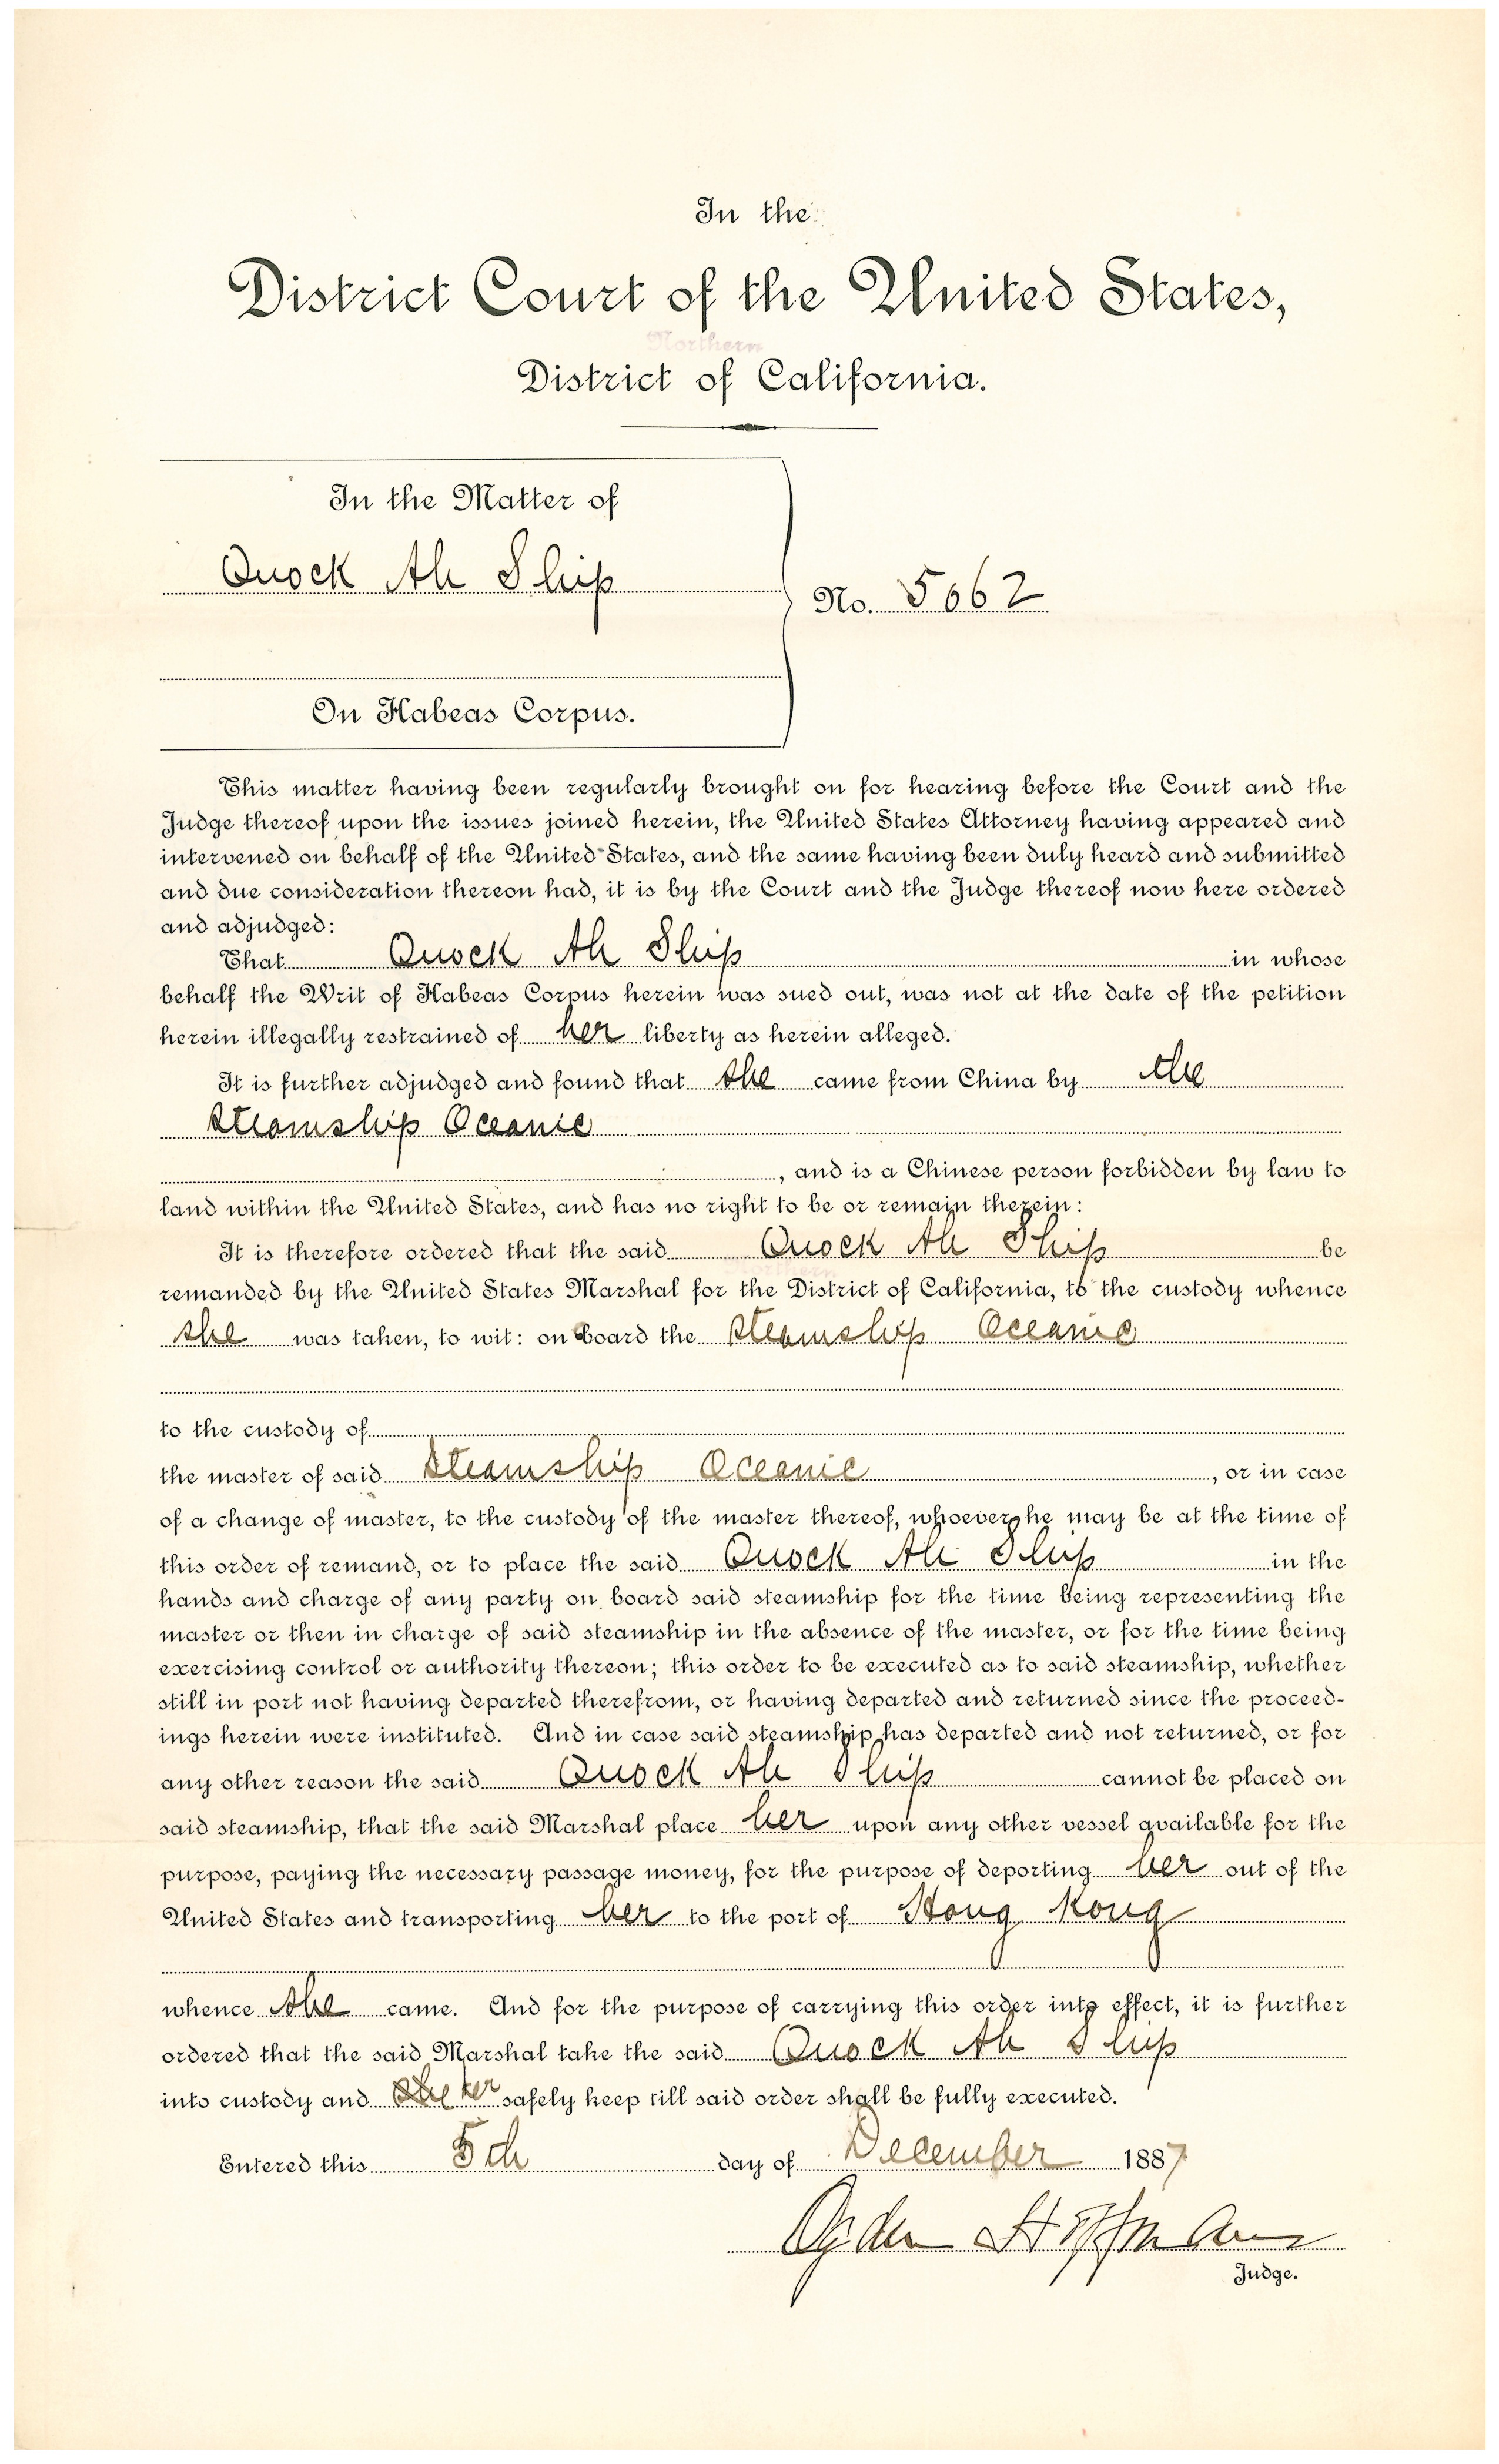 In the
District Court of the United States,
Northern
District of California.
In the Matter of
Quock Ah Ship
No. 5062
On Habeas Corpus.
This matter having been regularly brought on for hearing before the Court and the
Judge thereof upon the issues joined herein, the United States Attorney having appeared and
intervened on behalf of the United States, and the same having been duly heard and submitted
and due consideration thereon had, it is by the Court and the Judge thereof now here ordered
and adjudged:
That Quock Ah Ship in whose
behalf the Writ of Habeas Corpus herein was sued out, was not at the date of the petition
herein illegally restrained of her liberty as herein alleged.
It is further adjudged and found that she came from China by the
Steamship Oceanic
, and is a Chinese person forbidden by law to
land within the United States, and has no right to be or remain therein:
It is therefore ordered that the said Quock Ah Ship be
Northern
remanded by the United States Marshal for the District of California, to the custody whence
she was taken, to wit: on board the Steamship Oceanic
to the custody of
the master of said Steamship Oceanic, or in case
of a change of master, to the custody of the master thereof, whoever he may be at the time of
this order of remand, or to place the said Quock Ah Ship in the
hands and charge of any party on board said steamship for the time being representing the
master or then in charge of said steamship in the absence of the master, or for the time being
exercising control or authority thereon; this order to be executed as to said steamship, whether
still in port not having departed therefrom, or having departed and returned since the proceed-
ings herein were instituted. And in case said steamship has departed and not returned, or for
any other reason the said Quock Ah Ship cannot be placed on
said steamship, that the said Marshal place her upon any other vessel available for the
purpose, paying the necessary passage money, for the purpose of deporting her out of the
United States and transporting her to the port of Hong Kong
whence she came. And for the purpose of carrying this order into effect, it is further
ordered that the said Marshal take the said Quock Ah Ship
into custody and she her safely keep till said order shall be fully executed.
Entered this 5th day of December 1887
Ogden Hoffman
Judge.